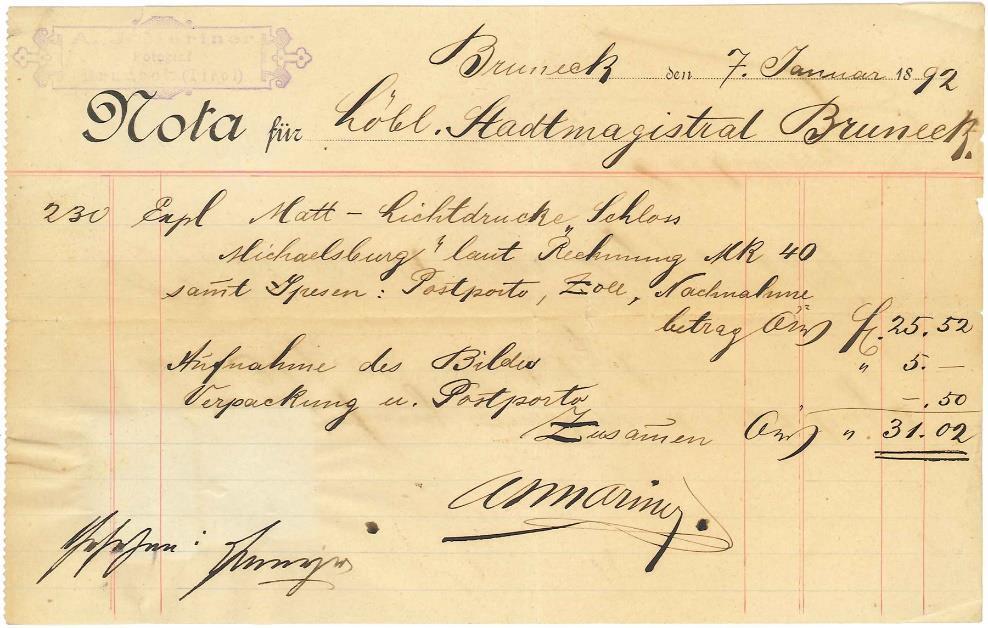 A. J. Mariner
Fotograf
Bruneck (Tirol)
Bruneck den 7. Januar 1892
Nota für Löbl. Stadtmagistrat Bruneck.
230 Expl Matt - Lichtdrucke „Schloss
Michaelsburg" laut Rechnung MK 40
samt Spesen: Postporto, Zoll, Nachnahme
betrag ÖW fl. 25.52
Aufnahme des Bildes " 5.—
Verpackung u. Postporto —.50
Zusam̄en ÖW " 31.02
Mariner
Gesehen: